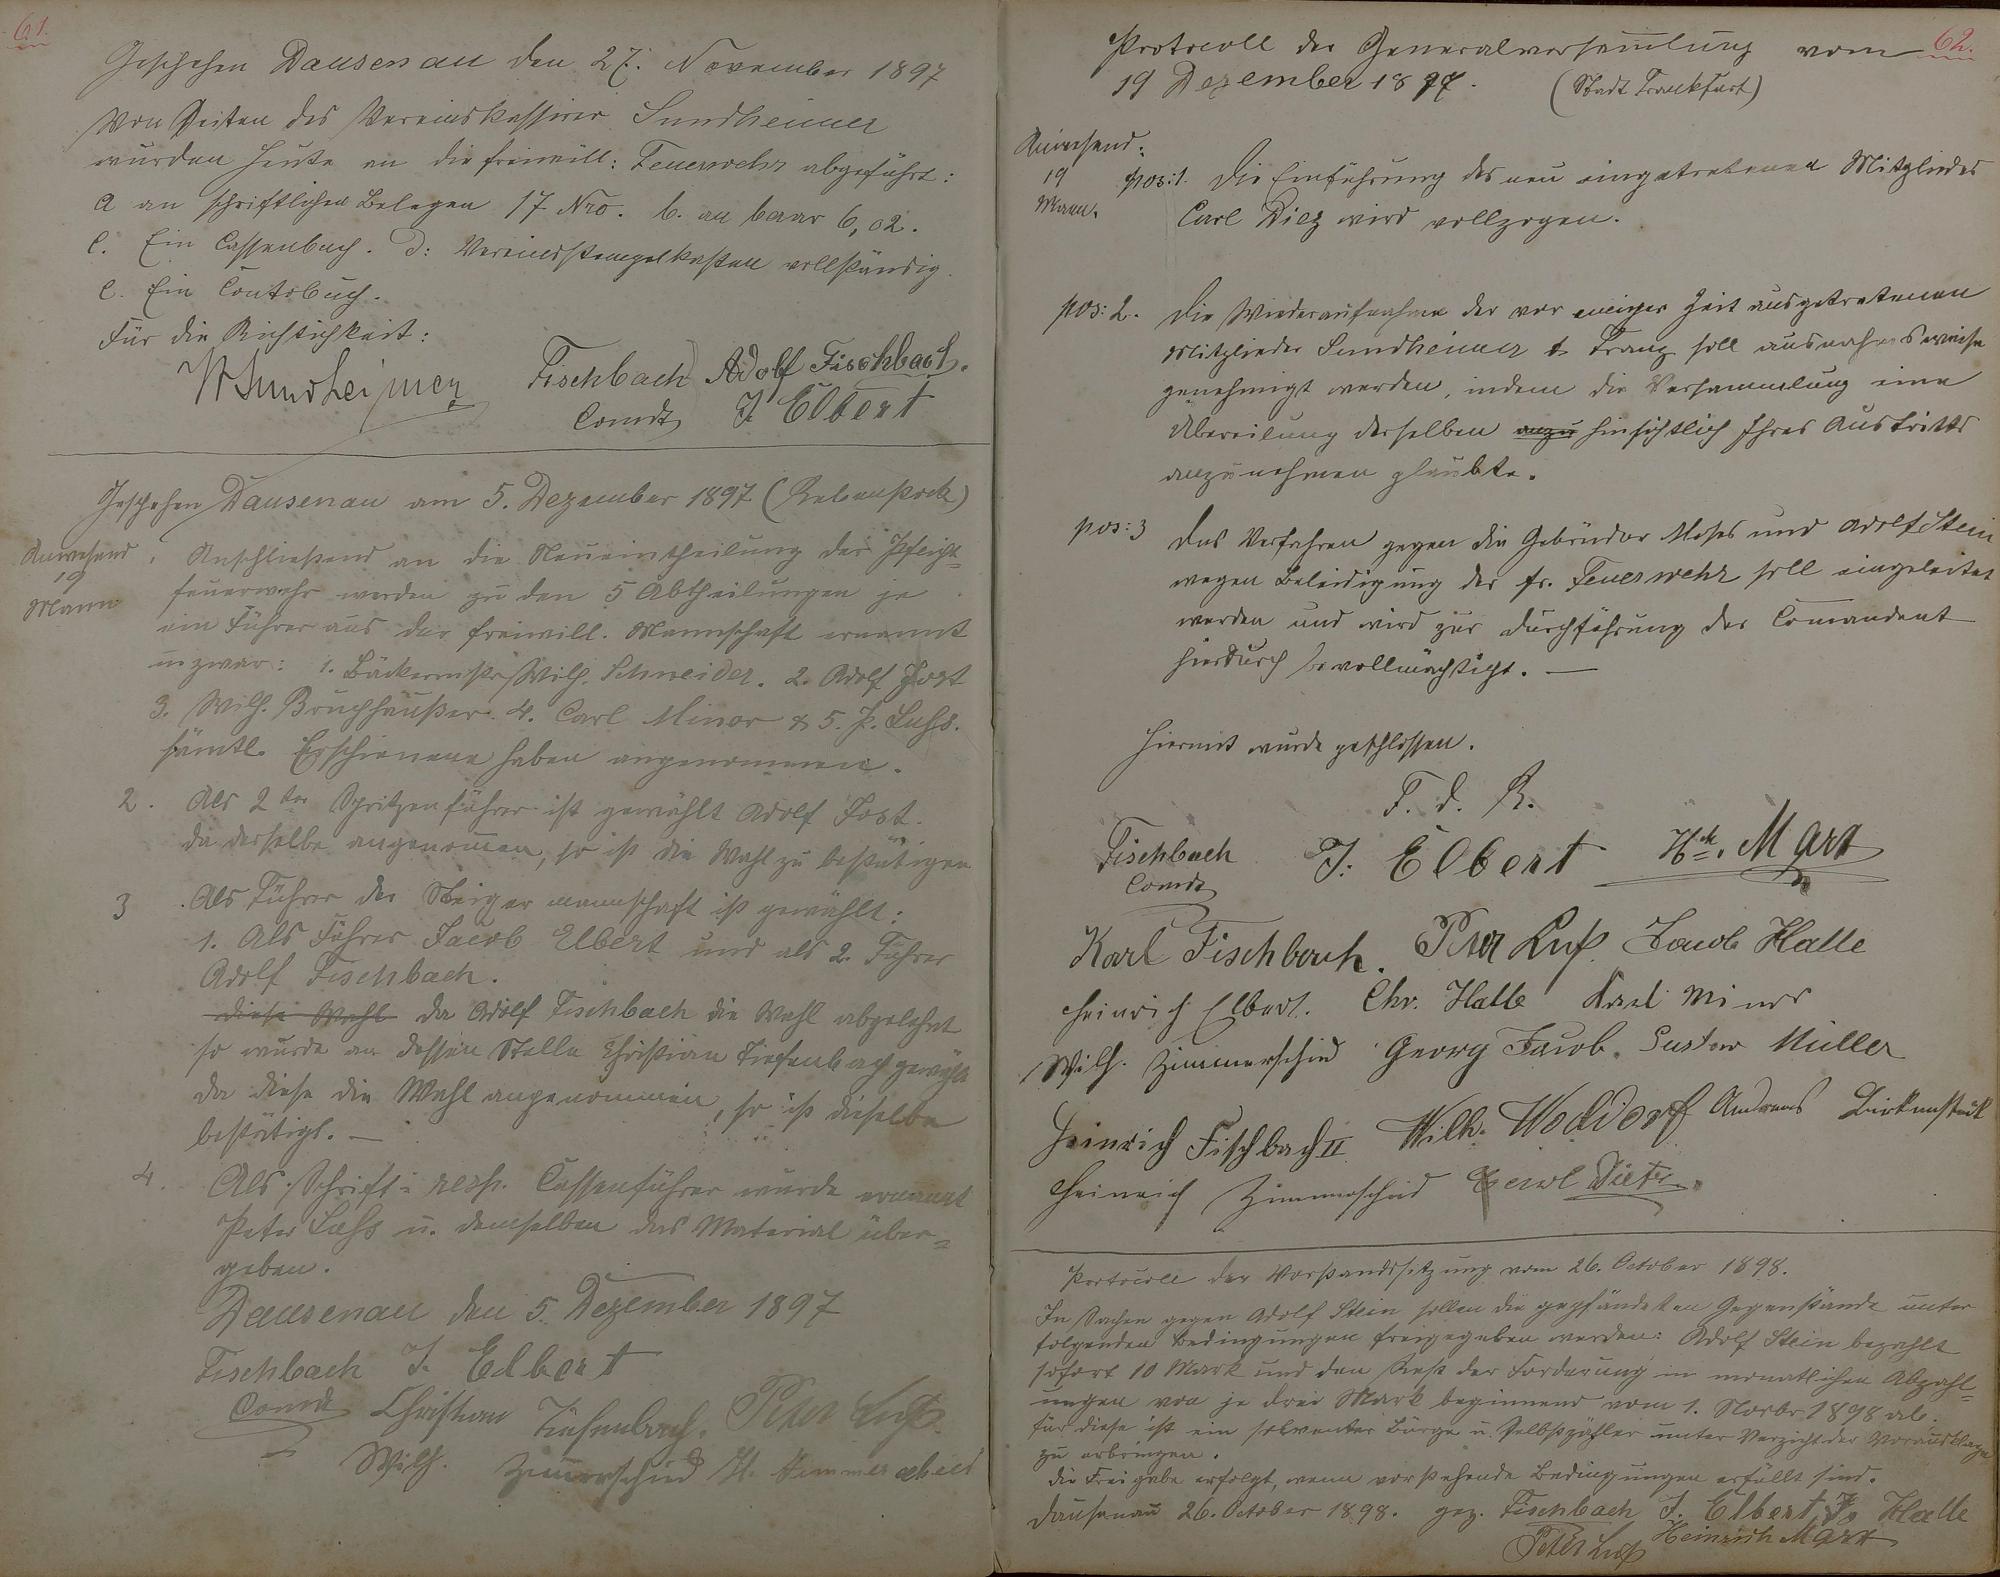 61.
Geschehen Dausenau den 27. November 1897
Von Seiten des Vereinskassirer Sundheimer
wurden heute an die freiwill: Feuerwehr abgeführt:
a an schriftlichen Belegen 17 Nro. b. an baar 6,02.
c. Ein Cassenbuch. d: Vereinsstempelkasten vollständig.
e. Ein Contobuch.
Für die Richtichkeit:
W Sundheimer Fischbach Adolf Fischbach.
Comdt J Elbert
Geschehen Dausenau am 5. Dezember 1897 (Rebenstock)
Anwesend
19
Mann
Anschließend an die Neueintheilung der Pflicht=
feuerwehr werden zu den 5 Abtheilungen je
ein Führer aus der freiwill. Mannschaft ernannt
u zwar: 1. Bäckermstr Wilh. Schneider. 2. Adolf Jost
3. Wilh. Bruchhäußer. 4. Carl Minor & 5. P. Luhs.
sämtl. Erschienene haben angenommen.
2. Als 2ter Spritzenführer ist gewählt Adolf Jost.
da derselbe angenommen, so ist die Wahl zu bestätigen
3 Als Führer der Steigermannschaft ist gewählt:
1. Als Führer Jacob Elbert und als 2. Führer
Adolf Fischbach.
diese Wahl da Adolf Fischbach die Wahl abgelehnt
so wurde an dessen Stelle Christian Tiefenbach gewählt
da diese die Wahl angenommen, so ist dieselbe
bestätigt. —
4. Als Schrift= resp. Cassenführer wurde ernannt
Peter Luhs u. demselben das Material über=
geben.
Dausenau den 5. Dezember 1897
Fischbach J. Elbert
Comdt Christian Tiefenbach. Peter Luß
Wilh. Zimmerschied H. Zimmerschied
62.
Protocoll der Generalversammlung vom
19 Dezember 1897. (Stadt Frankfurt)
Anwesend:
19
Mann.
pos: 1. Die Einführung des neu eingetretenen Mitgliedes
Carl Diez wird vollzogen.
pos: 2. Die Wiederaufnahme der vor einiger Zeit ausgetretenen
Mitglieder Sundheimer & Franz soll ausnahmsweise
genehmigt werden, indem die Versammlung eine
Übereilung derselben anzu hinsichtlich Ihres Austritts
anzunehmen glaubte.
pos: 3 Das Verfahren gegen die Gebrüder Moses und Adolf Stein
wegen Beleidigung der fr. Feuerwehr soll eingeleitet
werden und wird zur Durchführung der Comandant
hierdurch bevollmächtigt. —
Hiermit wurde geschlossen.
F. d. R.
Fischbach J. Elbert Hch. Marx
Comdt
Karl Fischbach. Peter Luß. Jacob Halle
Heinrich Elbert. Chr. Halle Karl Minor
Wilh. Zimmerschied Georg Jacob. Gustav Müller
Heinrich Fischbach II Wilh. Wodtorf Andreas Birkenstock
Heinrich Zimmerschied
Protocoll der Vorstandssitzung vom 26. October 1898.
In Sachen gegen Adolf Stein sollen die gepfändeten Gegenstände unter
folgenden Bedingungen freigegeben werden: Adolf Stein bezahlt
sofort 10 Mark und den Rest der Forderung in monatlichen Abzahl=
ungen von je drei Mark beginnend vom 1. Novbr 1898 ab.
für diese ist ein solventer Bürge u. Selbstzahler unter Verzicht der Vorausklage
zu erbringen.
Die Freigabe erfolgt, wenn vorstehende Bedingungen erfüllt sind.
Dausenau 26. October 1898. gez. Fischbach J. Elbert J. Halle
Peter Luß Heinrich Marx